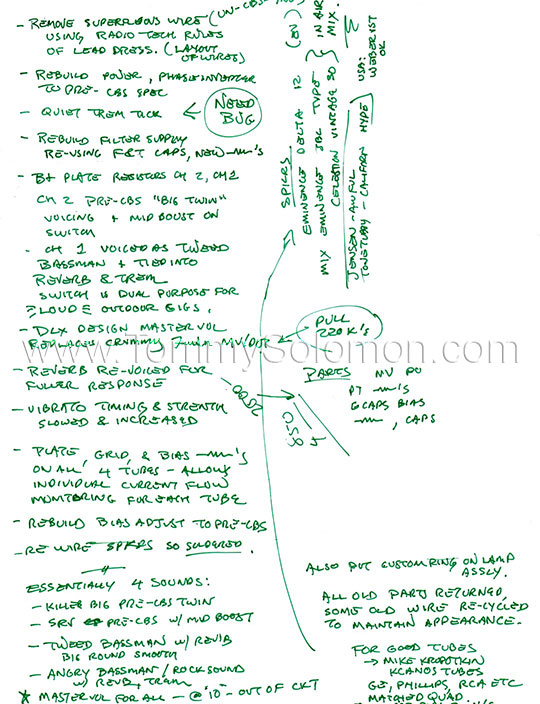 - REMOVE SUPERFLUOUS WIRE (UN-CBS
USING RADIO TECH RULES
OF LEAD DRESS. (LAYOUT
OF WIRES)
- REBUILD POWER, PHASE INVERTER
TO PRE-CBS SPEC
- QUIET TREM TICK
NEED
BUG
- REBUILD FILTER SUPPLY
RE-USING F&T CAPS, NEW 's
- B+ PLATE RESISTORS CH 2, CH1
CH 2 PRE-CBS "BIG TWIN"
VOICING + MID BOOST ON
SWITCH
- CH 1 VOICED AS TWEED
BASSMAN + TIED INTO
REVERB & TREM
SWITCH IS DUAL PURPOSE FOR
LOUD & OUTDOOR GIGS.
- DLX DESIGN MASTER VOL
REPLACING CRUMMY MV/DIST
- REVERB RE-VOICED FOR
FULLER RESPONSE
- VIBRATO TIMING & STRENGTH
SLOWED & INCREASED
- PLATE, GRID, & BIAS 's
ON ALL 4 TUBES - ALLOWS
INDIVIDUAL CURRENT FLOW
MONITORING FOR EACH TUBE
- REBUILD BIAS ADJUST TO PRE-CBS
- RE WIRE SPKRS SO SOLDERED.
ESSENTIALLY 4 SOUNDS:
- KILLER BIG PRE-CBS TWIN
- SRV PRE-CBS W/ MID BOOST
- TWEED BASSMAN W/ REVIB
BIG ROUND SMOOTH
- ANGRY BASSMAN / ROCK SOUND
W/ REVB, TREM
* MASTER VOL FOR ALL - @ "10" - OUT OF CKT
SPKRS
EMINENCE DELTA 12 (EN)
MIX EMINENCE JBL TYPE
CELESTION VINTAGE 30
IN AIR
MIX.
JENSEN - AWFUL
TONETUBBY - CALIFORN HYPE
USA:
WEBER IST
OK
PULL
220K's
PARTS MV POT
PT 's
6CAPS BIAS
, CAPS
ALSO PUT CUSTOM RING ON LAMP
ASSLY.
ALL OLD PARTS RETURNED,
SOME OLD WIRE RE-CYCLED
TO MAINTAIN APPEARANCE.
FOR GOOD TUBES
→ MIKE KROPOTKIN
KCANOS TUBES
GE, PHILLIPS, RCA ETC
MATCHED QUAD
www.TommySolomon.com